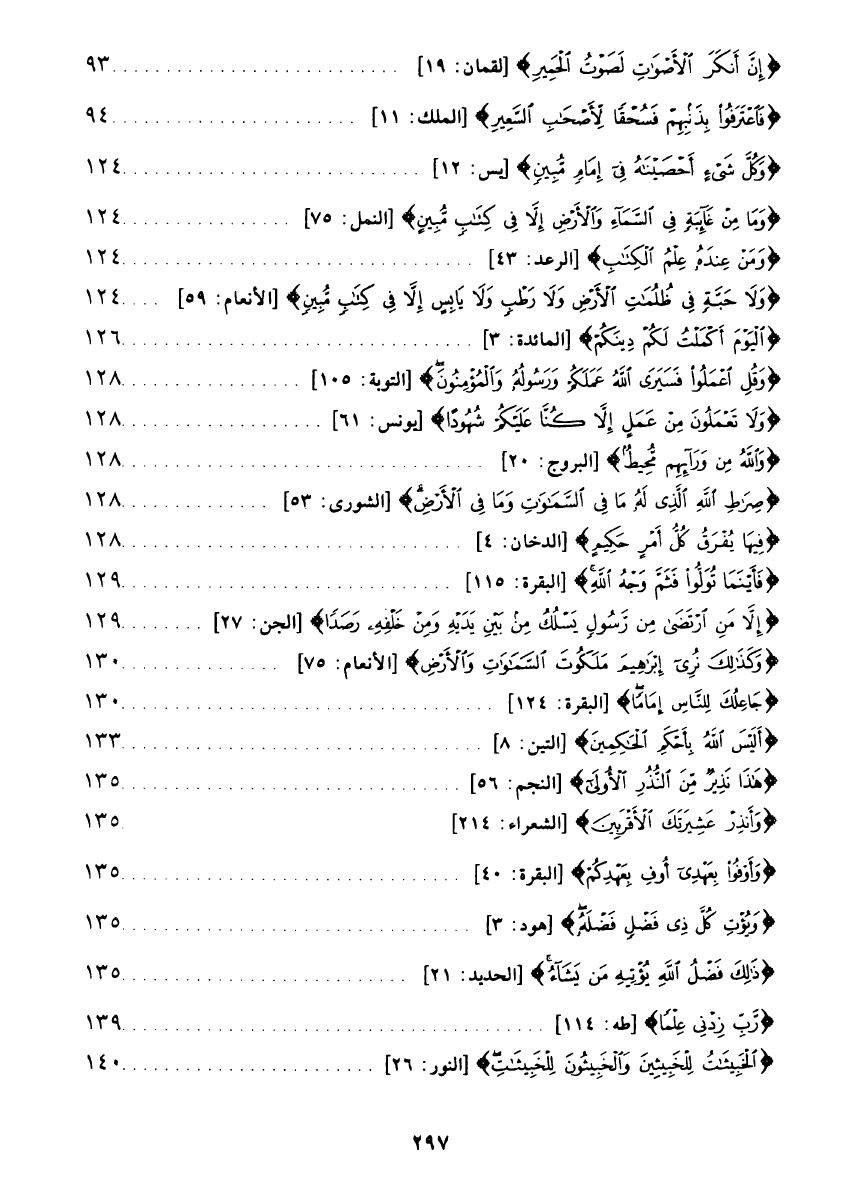 ﴿إِنَّ أَنكَرَ ٱلْأَصْوَٰتِ لَصَوْتُ ٱلْحَمِيرِ﴾ [لقمان: ١٩] ........................... ٩٣
﴿فَٱعْتَرَفُوا۟ بِذَنۢبِهِمْ فَسُحْقًا لِّأَصْحَٰبِ ٱلسَّعِيرِ﴾ [الملك: ١١] ....................... ٩٤
﴿وَكُلَّ شَىْءٍ أَحْصَيْنَٰهُ فِىٓ إِمَامٍ مُّبِينٍ﴾ [يس: ١٢] ............................ ١٢٤
﴿وَمَا مِنْ غَآئِبَةٍ فِى ٱلسَّمَآءِ وَٱلْأَرْضِ إِلَّا فِى كِتَٰبٍ مُّبِينٍ﴾ [النمل: ٧٥] ................ ١٢٤
﴿وَمَنْ عِندَهُۥ عِلْمُ ٱلْكِتَٰبِ﴾ [الرعد: ٤٣] ................................. ١٢٤
﴿وَلَا حَبَّةٍ فِى ظُلُمَٰتِ ٱلْأَرْضِ وَلَا رَطْبٍ وَلَا يَابِسٍ إِلَّا فِى كِتَٰبٍ مُّبِينٍ﴾ [الأنعام: ٥٩] .... ١٢٤
﴿ٱلْيَوْمَ أَكْمَلْتُ لَكُمْ دِينَكُمْ﴾ [المائدة: ٣] .................................. ١٢٦
﴿وَقُلِ ٱعْمَلُوا۟ فَسَيَرَى ٱللَّهُ عَمَلَكُمْ وَرَسُولُهُۥ وَٱلْمُؤْمِنُونَۖ﴾ [التوبة: ١٠٥] ................. ١٢٨
﴿وَلَا تَعْمَلُونَ مِنْ عَمَلٍ إِلَّا كُنَّا عَلَيْكُمْ شُهُودًا﴾ [يونس: ٦١] ................... ١٢٨
﴿وَٱللَّهُ مِن وَرَآئِهِم مُّحِيطٌۢ﴾ [البروج: ٢٠] .................................. ١٢٨
﴿صِرَٰطِ ٱللَّهِ ٱلَّذِى لَهُۥ مَا فِى ٱلسَّمَٰوَٰتِ وَمَا فِى ٱلْأَرْضِۗ﴾ [الشورى: ٥٣] .............. ١٢٨
﴿فِيهَا يُفْرَقُ كُلُّ أَمْرٍ حَكِيمٍ﴾ [الدخان: ٤] ................................ ١٢٨
﴿فَأَيْنَمَا تُوَلُّوا۟ فَثَمَّ وَجْهُ ٱللَّهِۚ﴾ [البقرة: ١١٥] ............................... ١٢٩
﴿إِلَّا مَنِ ٱرْتَضَىٰ مِن رَّسُولٍ يَسْلُكُ مِنۢ بَيْنِ يَدَيْهِ وَمِنْ خَلْفِهِۦ رَصَدًا﴾ [الجن: ٢٧] ........ ١٢٩
﴿وَكَذَٰلِكَ نُرِىٓ إِبْرَٰهِيمَ مَلَكُوتَ ٱلسَّمَٰوَٰتِ وَٱلْأَرْضِ﴾ [الأنعام: ٧٥] ............... ١٣٠
﴿جَاعِلُكَ لِلنَّاسِ إِمَامًاۖ﴾ [البقرة: ١٢٤] ................................... ١٣٠
﴿أَلَيْسَ ٱللَّهُ بِأَحْكَمِ ٱلْحَٰكِمِينَ﴾ [التين: ٨] ................................. ١٣٣
﴿هَٰذَا نَذِيرٌ مِّنَ ٱلنُّذُرِ ٱلْأُولَىٰٓ﴾ [النجم: ٥٦] ................................ ١٣٥
﴿وَأَنذِرْ عَشِيرَتَكَ ٱلْأَقْرَبِينَ﴾ [الشعراء: ٢١٤] ١٣٥
﴿وَأَوْفُوا۟ بِعَهْدِىٓ أُوفِ بِعَهْدِكُمْ﴾ [البقرة: ٤٠] ................................ ١٣٥
﴿وَيُؤْتِ كُلَّ ذِى فَضْلٍ فَضْلَهُۥۖ﴾ [هود: ٣] ................................. ١٣٥
﴿ذَٰلِكَ فَضْلُ ٱللَّهِ يُؤْتِيهِ مَن يَشَآءُۚ﴾ [الحديد: ٢١] ........................... ١٣٥
﴿رَّبِّ زِدْنِى عِلْمًا﴾ [طه: ١١٤] ........................................ ١٣٩
﴿ٱلْخَبِيثَٰتُ لِلْخَبِيثِينَ وَٱلْخَبِيثُونَ لِلْخَبِيثَٰتِۖ﴾ [النور: ٢٦] ........................ ١٤٠
٢٩٧